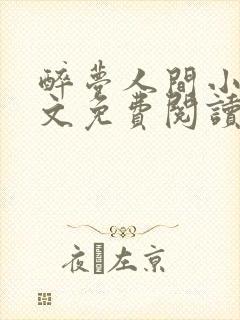 醉夢人間小
文免費閱讀
夜 左京